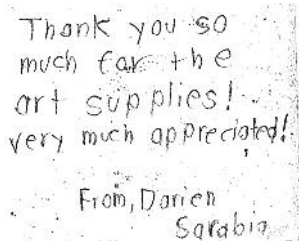 Thank you so
much for the
art supplies!
very much appreciated!
From, Dorien
Sarabia